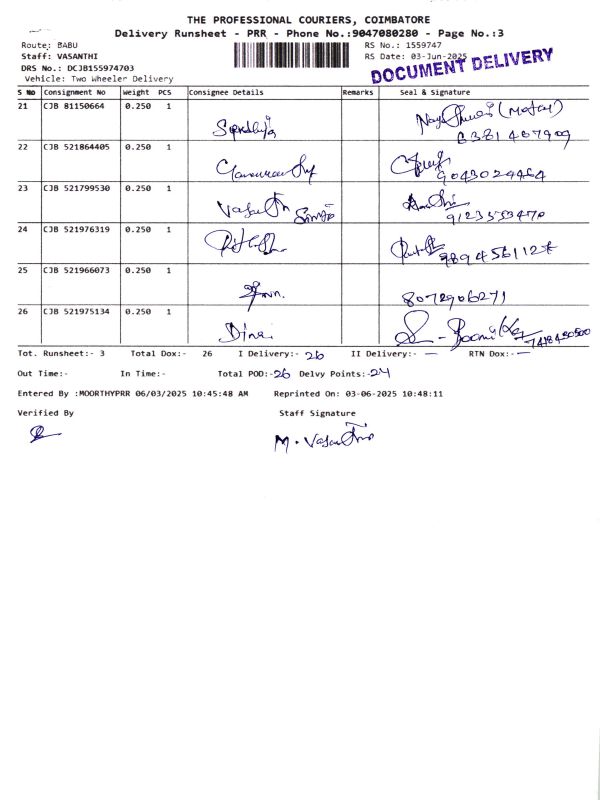 THE PROFESSIONAL COURIERS, COIMBATORE
Delivery Runsheet - PRR - Phone No.:9047080280 - Page No.:3
Route: BABU
RS No.: 1559747
Staff: VASANTHI
RS Date: 03-Jun-2025
DRS No.: DCJB155974703
DOCUMENT DELIVERY
Vehicle: Two Wheeler Delivery
S No Consignment No Weight PCS Consignee Details Remarks Seal & Signature
21 CJB 81150664 0.250 1 (Mother)
6381407909
22 CJB 521864405 0.250 1
9043029464
23 CJB 521799530 0.250 1
24 CJB 521976319 0.250 1
25 CJB 521966073 0.250 1 8072906271
26 CJB 521975134 0.250 1
Tot. Runsheet:- 3 Total Dox:- 26 I Delivery:- 26 II Delivery:- — RTN Dox:- —
Out Time:- In Time:- Total POD:- 26 Delvy Points:- 24
Entered By :MOORTHYPRR 06/03/2025 10:45:48 AM Reprinted On: 03-06-2025 10:48:11
Verified By Staff Signature